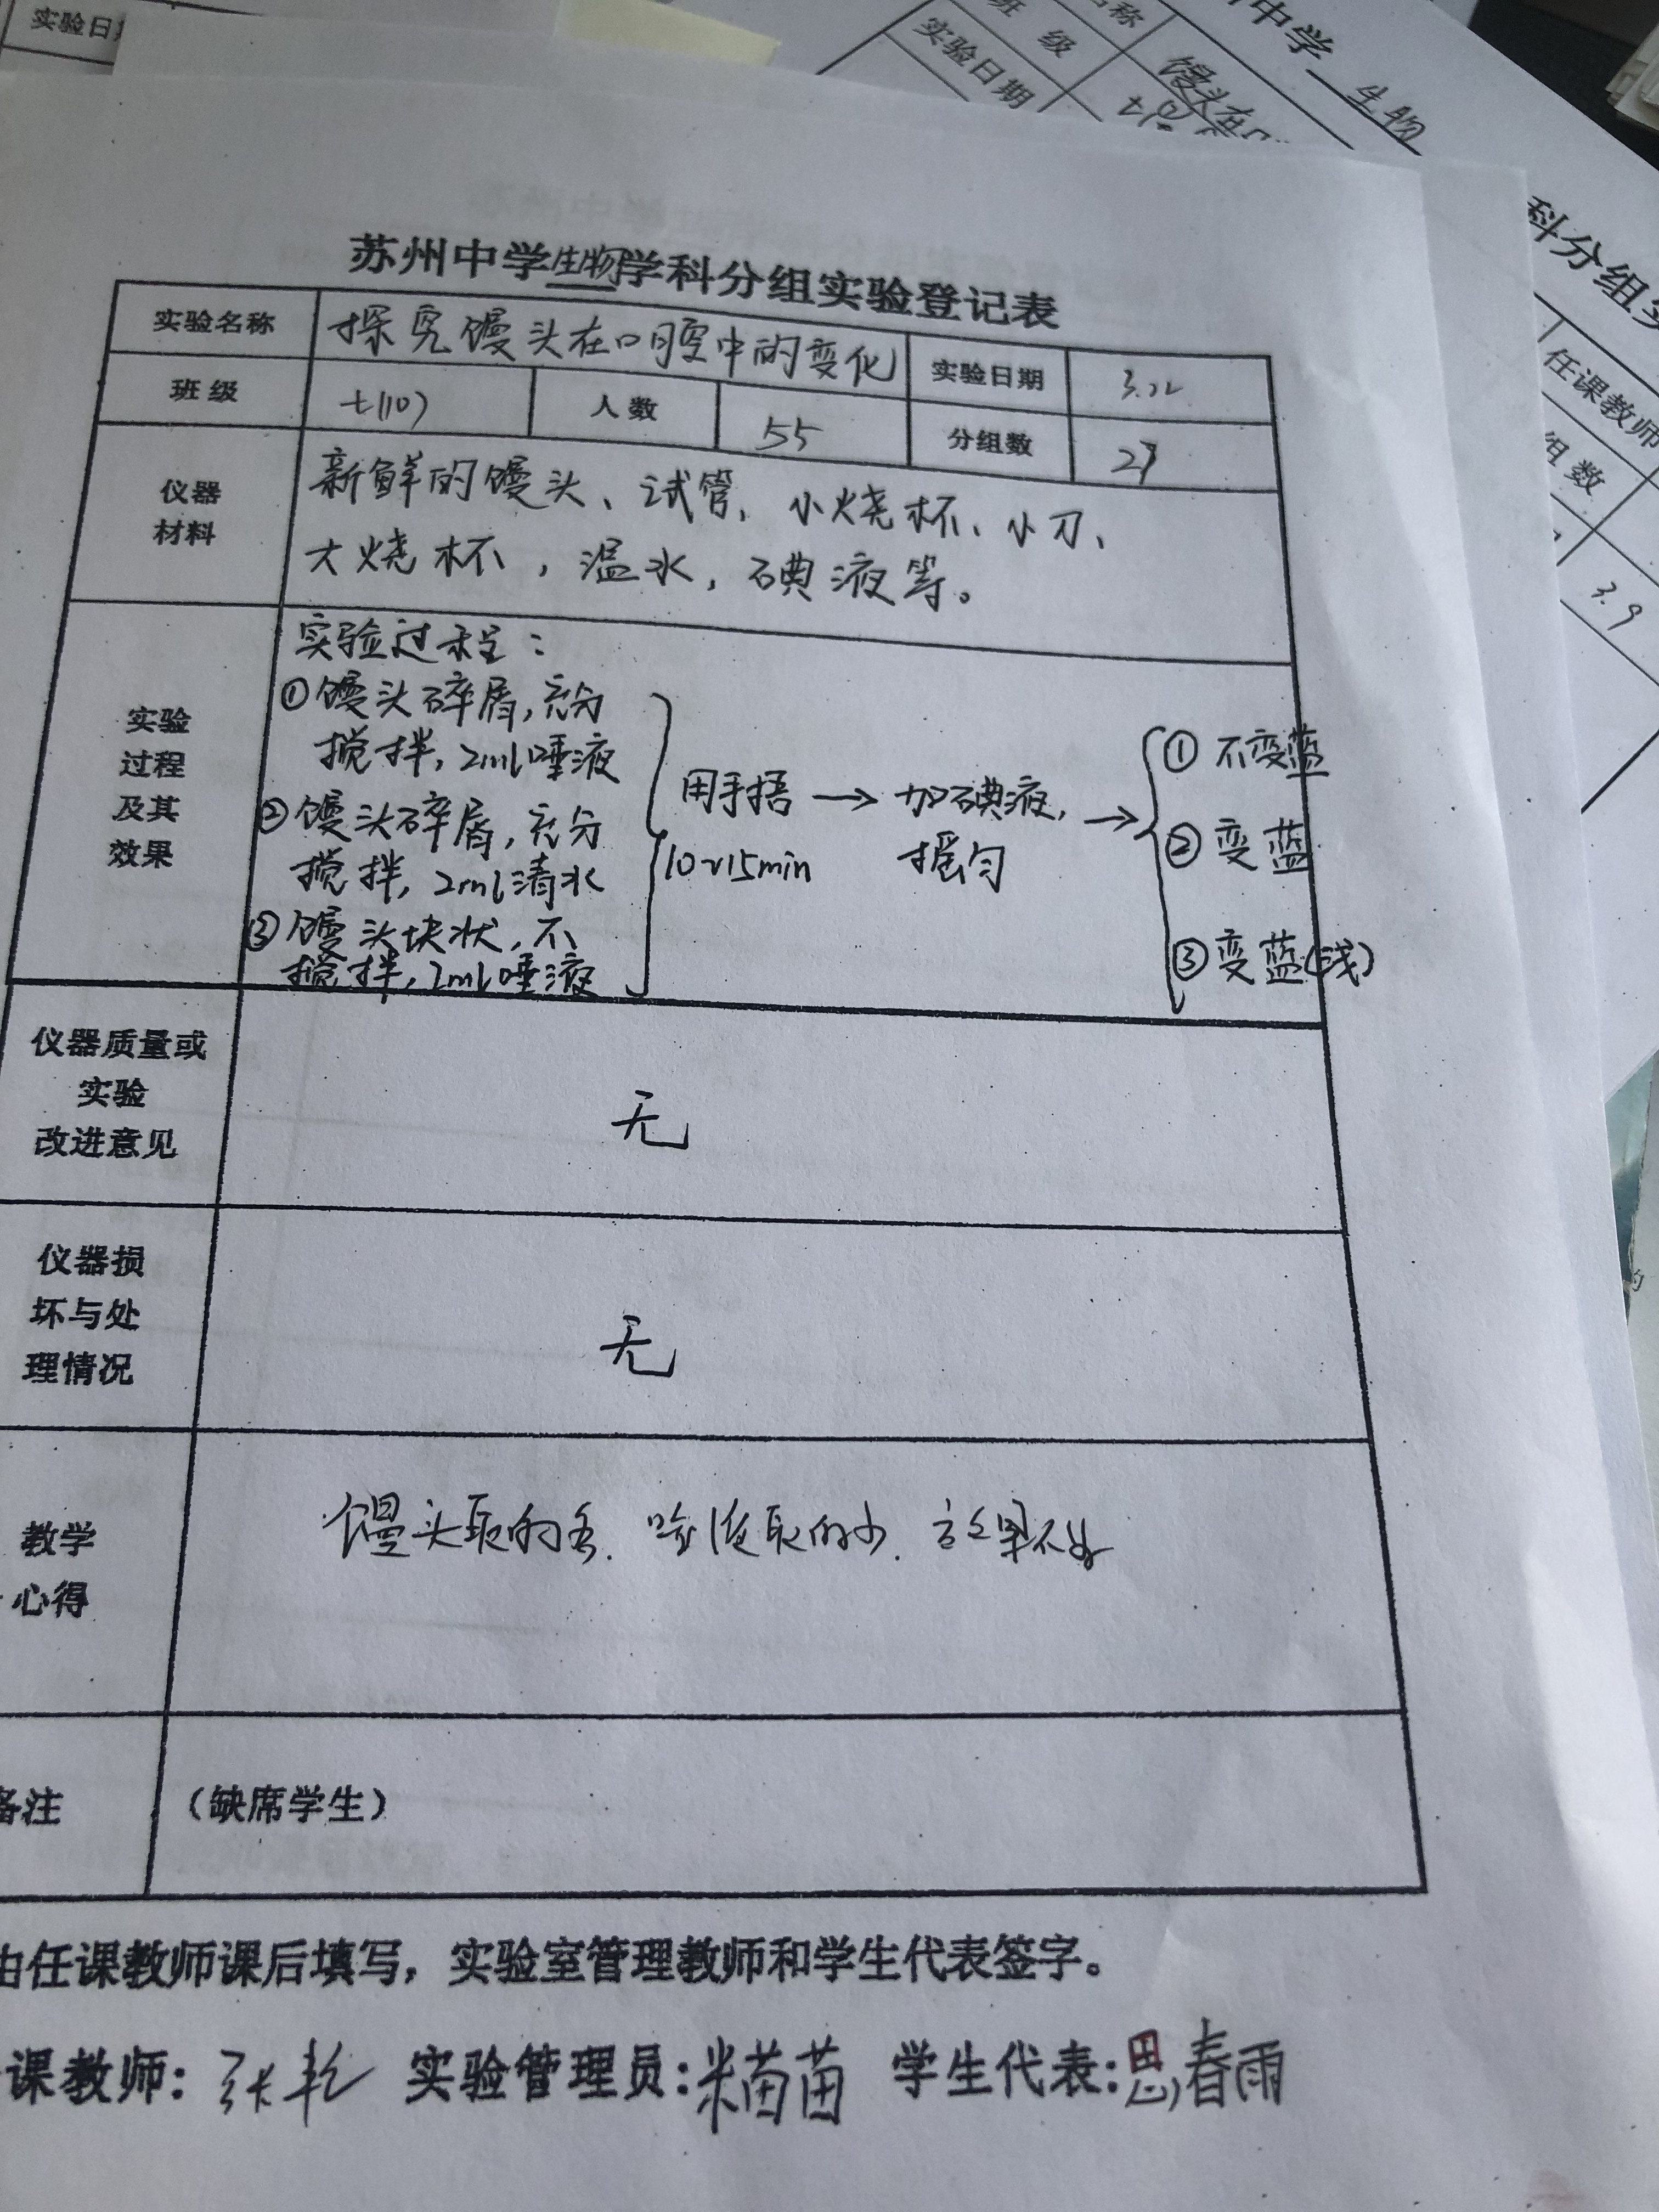 实验日
中学 生物
名称 馒头在
班 级 七(
实验日期
科分组实
任课教师
组 数
3.9
苏州中学生物学科分组实验登记表
实验名称 探究馒头在口腔中的变化 实验日期 3.22
班 级 七(10) 人 数 55 分组数 27
仪器
材料
新鲜的馒头、试管、小烧杯、小刀、
大烧杯,温水,碘液等。
实验
过程
及其
效果
实验过程:
①馒头碎屑,充分
搅拌,2ml唾液
②馒头碎屑,充分
搅拌,2ml清水
③馒头块状,不
搅拌,2ml唾液
用手捂 → 加碘液, →
10~15min 摇匀
① 不变蓝
② 变蓝
③ 变蓝(浅)
仪器质量或
实验
改进意见
无
仪器损
坏与处
理情况
无
教学
心得
馒头取的多.唾液取的少.效果不好
备注 (缺席学生)
由任课教师课后填写,实验室管理教师和学生代表签字。
课教师:张乾 实验管理员:米苗苗 学生代表:思春雨